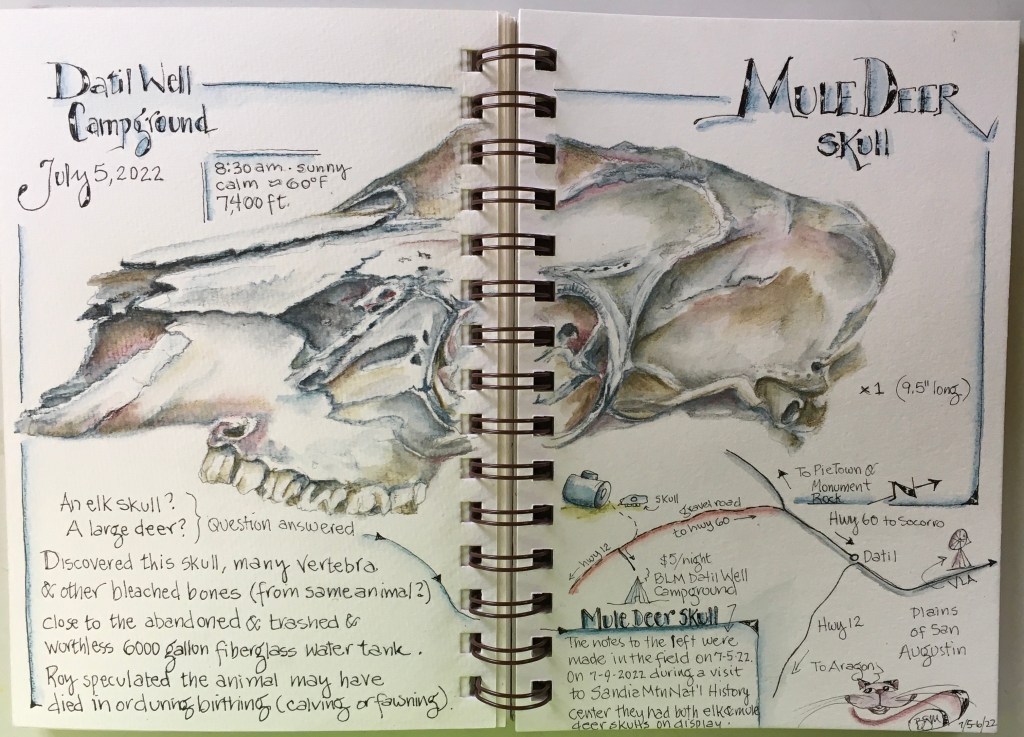 Datil Well
Campground
July 5, 2022
8:30 am · sunny
calm ≈ 60°F
7,400 ft.
MULE DEER
SKULL
x 1 (9.5" long)
An elk skull?
A large deer? } Question answered
Discovered this skull, many vertebra
& other bleached bones (from same animal?)
close to the abandoned & trashed &
worthless 6000 gallon fiberglass water tank.
Roy speculated the animal may have
died in or during birthing (calving or fawning).
To Pie Town &
Monument
Rock
N
Skull
gravel road
to hwy 60
Hwy 12
Hwy 60 to Socorro
Datil
VLA
$5/night
BLM Datil Well
Campground
Hwy 12
Plains
of San
Augustin
To Aragon
Mule Deer Skull
The notes to the left were
made in the field on 7-5-22.
On 7-9-2022 during a visit
to Sandia Mtn Nat'l History
center they had both elk & mule
deer skulls on display.
7/5-6/22